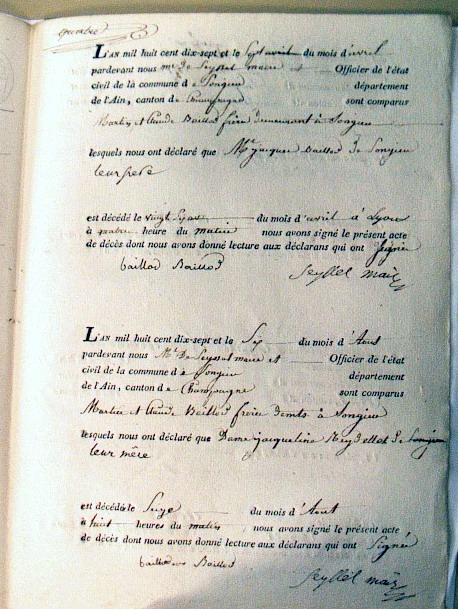 L'AN mil huit cent dix-sept et le sept avril du mois d'avril
pardevant nous Mr de Seyssel maire et Officier de l'état
civil de la commune de Songieu département
de l'Ain, canton de Champagne sont comparus
Martin et Claude Baillod frère demeurant à Songieu
lesquels nous ont déclaré que Mr jacques Baillod de Songieu
leur père
est décédé le vingt du mois d'avril à Lyon
à quatre heure du matin nous avons signé le présent acte
de décès dont nous avons donné lecture aux déclarans qui ont signé
baillod Baillod Seyssel maire
L'AN mil huit cent dix-sept et le Six du mois d'Aout
pardevant nous Mr De Seyssel maire et Officier de l'état
civil de la commune de Songieu département
de l'Ain, canton de Champagne sont comparus
Martin et Claude Baillod frère demts à Songieu
lesquels nous ont déclaré que Dame jacqueline Reydellet de Songieu
leur mère
est décédé le du mois d'Aout
à huit heures du matin nous avons signé le présent acte
de décès dont nous avons donné lecture aux déclarans qui ont Signé
baillod Baillod
Seyssel maire